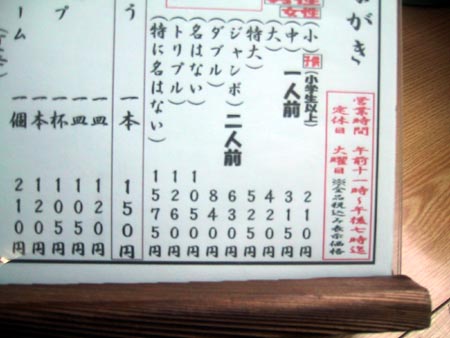 がき
営業時間 午前十一時～午後七時迄
定休日 火曜日 ※全品税込み表示価格
女性
(小) 子供 (小学生以上) 210円
(中) 一人前 315円
(大) 420円
(特大) 525円
(ジャンボ) 二人前 630円
(ダブル) 840円
(名はない) 1050円
(トリプル) 1260円
(特に名はない) 1575円
う 一本 150円
一皿 120円
一皿 105円
プ 一杯 105円
一本 120円
ーム 一個 210円